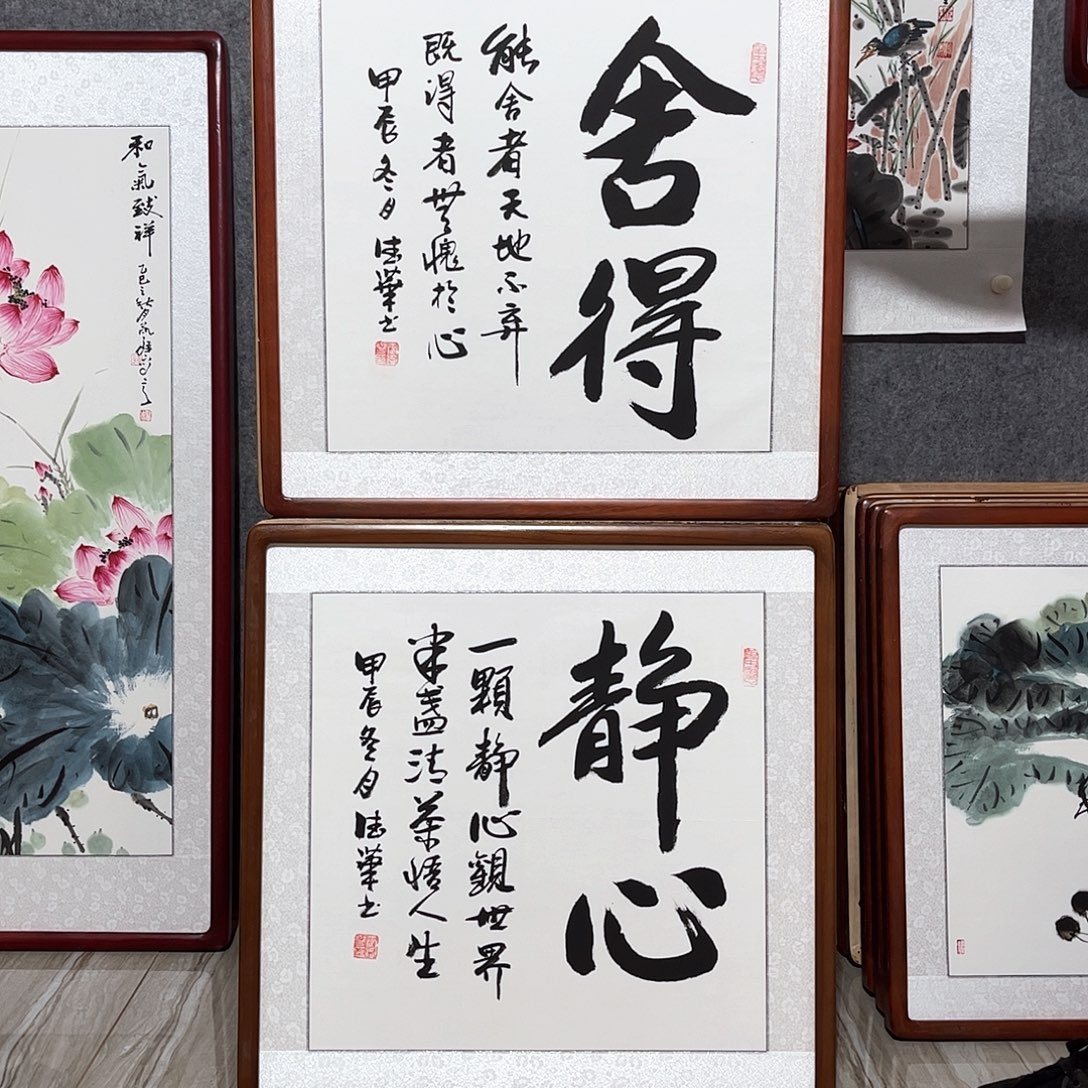 舍得
能舍者天地不弃
既得者無愧於心
甲辰冬月德華书
静心
一顆静心觀世界
半盏清茶悟人生
甲辰冬月德華书
和氣致祥